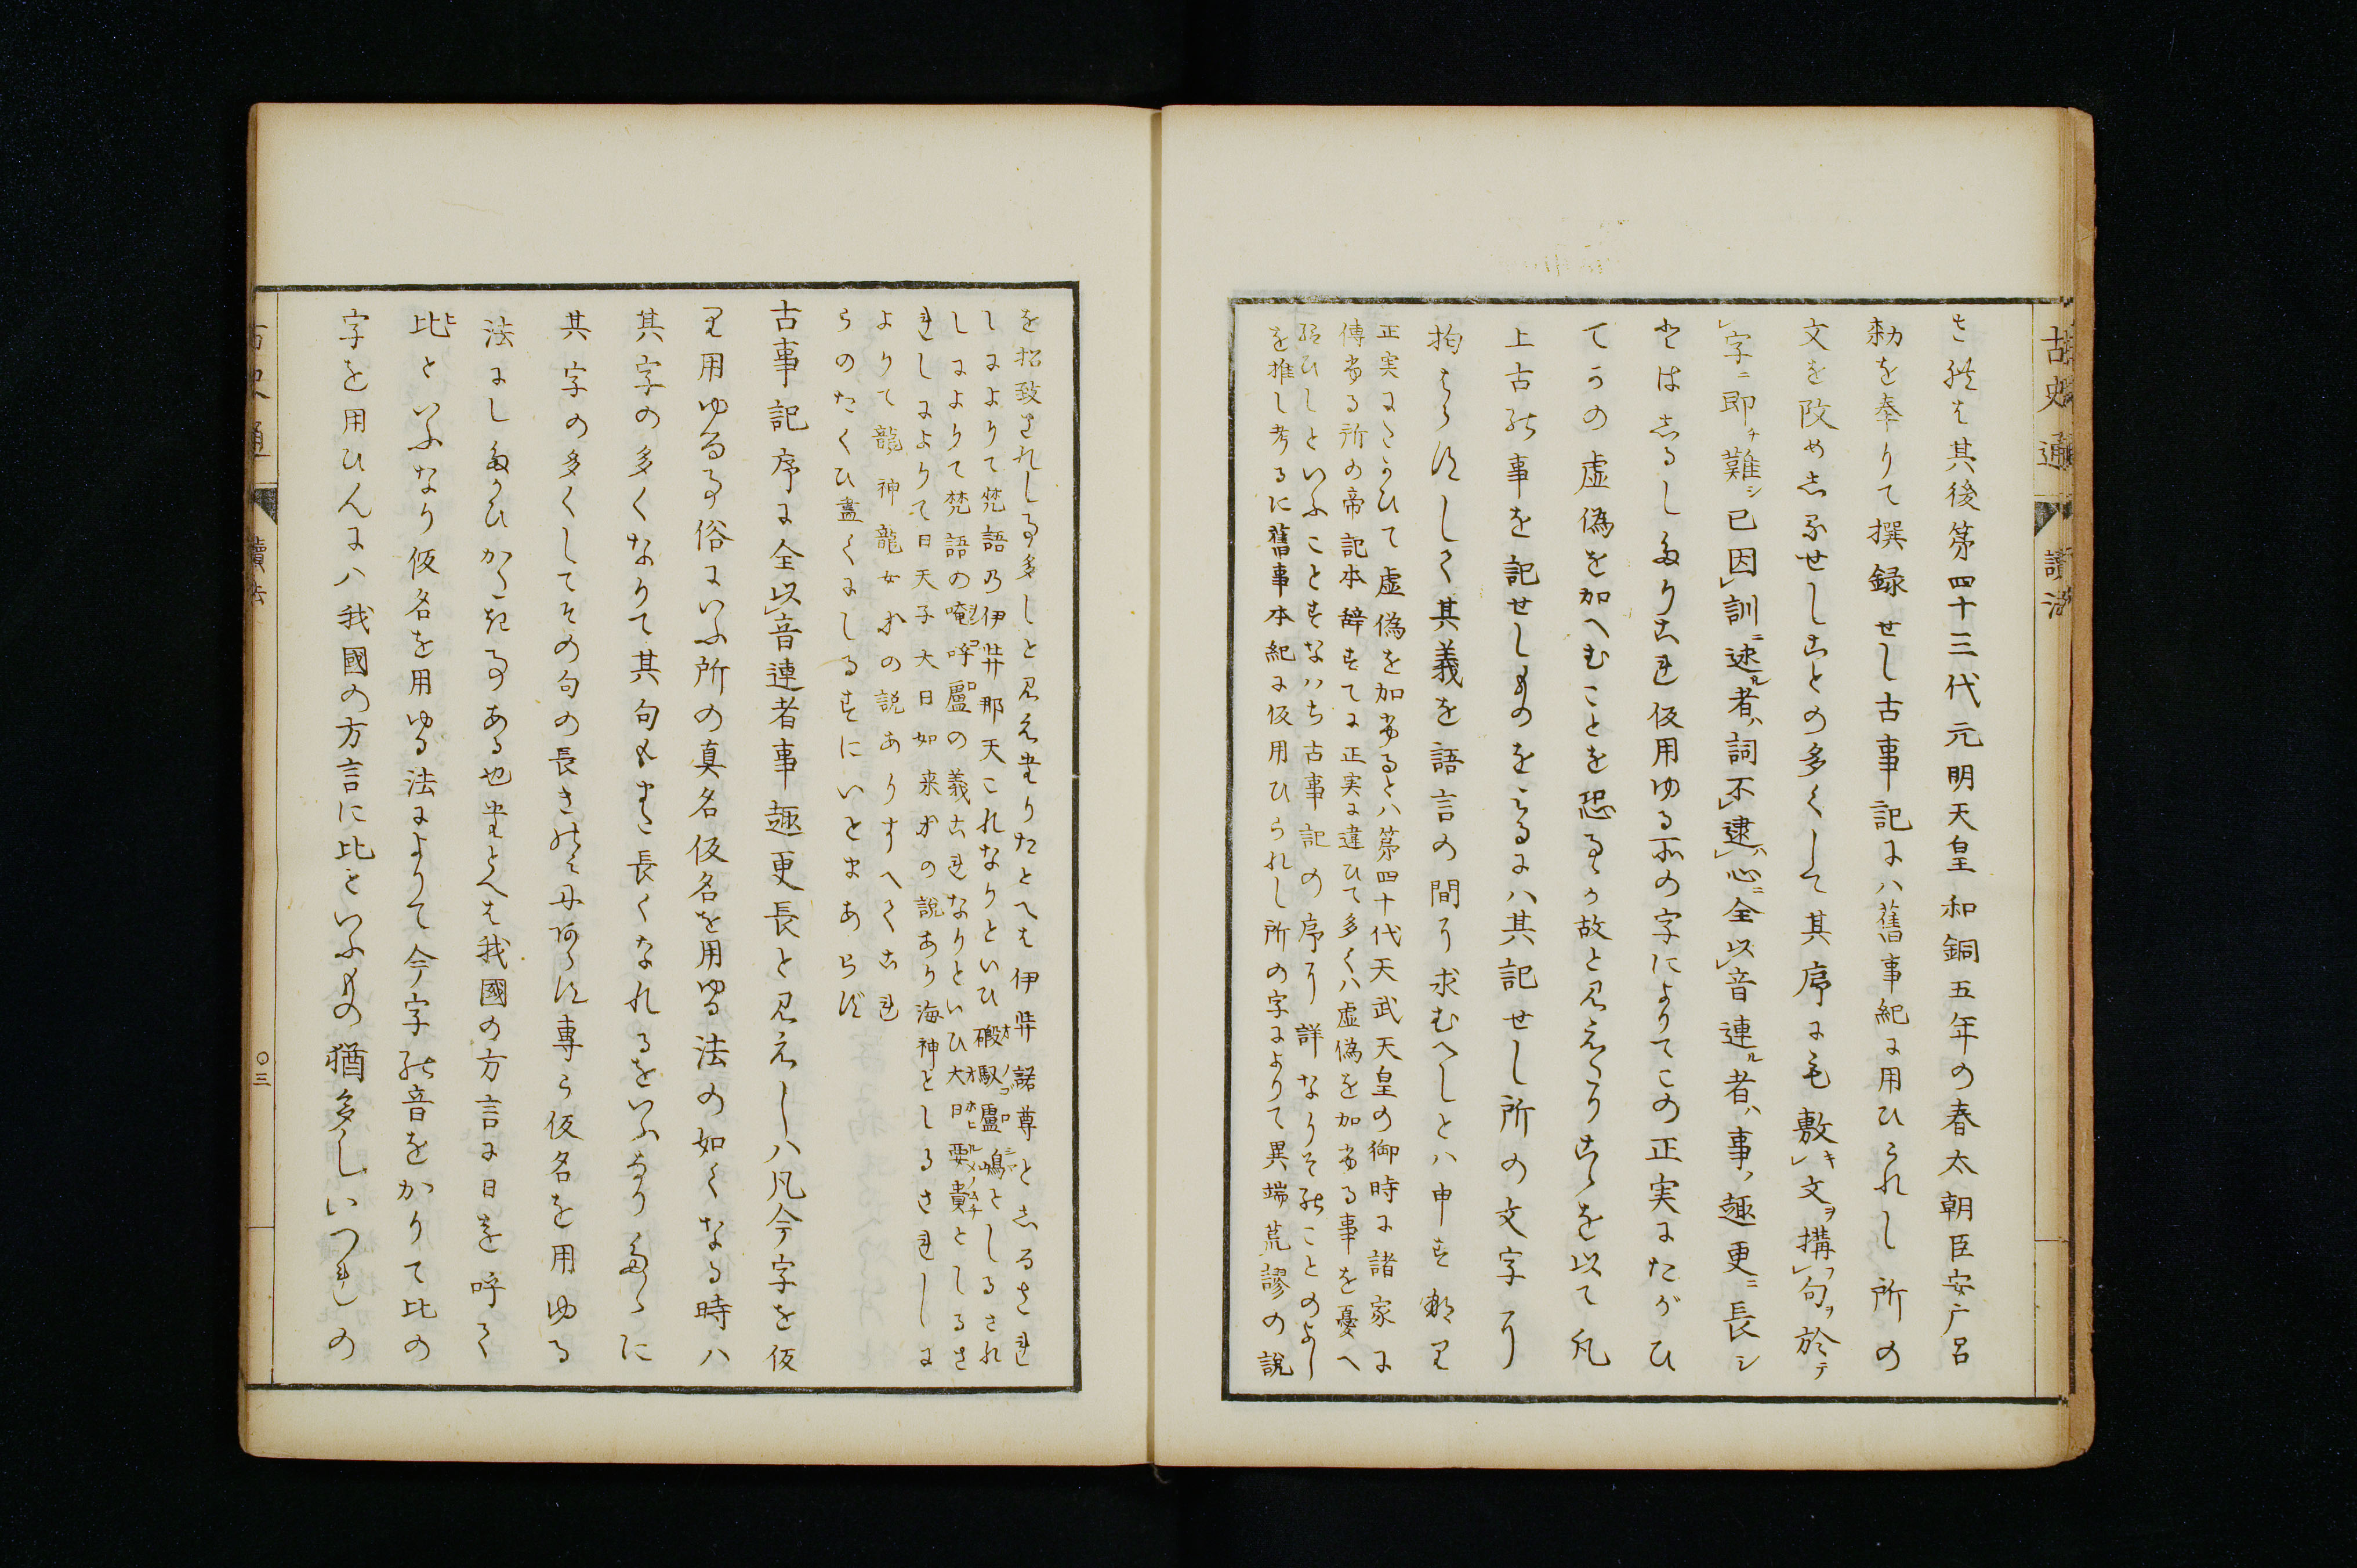 古史通 讀法
され㆑は其後第四十三代元明天皇和銅五年の春太朝臣安麻呂
勅を奉りて撰録せし古事記には舊事紀に用ひられし所の
文を改めしるせしことの多くして其序にも敷㆑文構㆑句於
㆑字即難已因㆑訓述者詞不㆑逮㆑心全以㆑音連者事趣更長
とはしるしたりこれ仮用ゆる所の字によりてこの正実にたがひ
てかの虚偽を加へむことを恐るゝ故と見えたりこゝを以て凡
上古の事を記せしものをみるには其記せし所の文字に
拘はらずして其義を語言の間に求むへしとは申す也
正実にたかひて虚偽を加ふるとは第四十代天武天皇の御時に諸家に
傳ふる所の帝記本辞すてに正実に違ひて多くは虚偽を加ふる事を憂へ
給ひしといふことすなはち古事記の序に詳なりそのことのよし
を推し考るに舊事本紀に仮用ひられし所の字によりて異端荒謬の説
を招致されし事多しと見えたりたとへは伊弉諾尊としるされ
しによりて梵語乃伊弉那天これなりといひ磤馭盧嶋としるされ
しによりて梵語の唵呼盧の義これなりといひ大日孁貴としるさ
れしによりて日天子大日如来等の説あり海神としるされしに
よりて龍神龍女等の説ありすへてこれ
らのたくひ盡くにしるすにいとまあらず
古事記序に全以㆑音連者事趣更長と見えしは凡今字を仮
り用ゆる事俗にいふ所の真名仮名を用ゆる法の如くなる時は
其字の多くなりて其句もまた長くなれるをいふなりたゝに
其字の多くしてその句の長きのみにあらず専ら仮名を用ゆる
法にしたかひかたき事ある也たとへは我國の方言に日を呼て
比といふなり仮名を用ゆる法によりて今字の音をかりて比の
字を用ひんには我國の方言に比といふもの猶多しいつれの
古史通 讀法 〇三